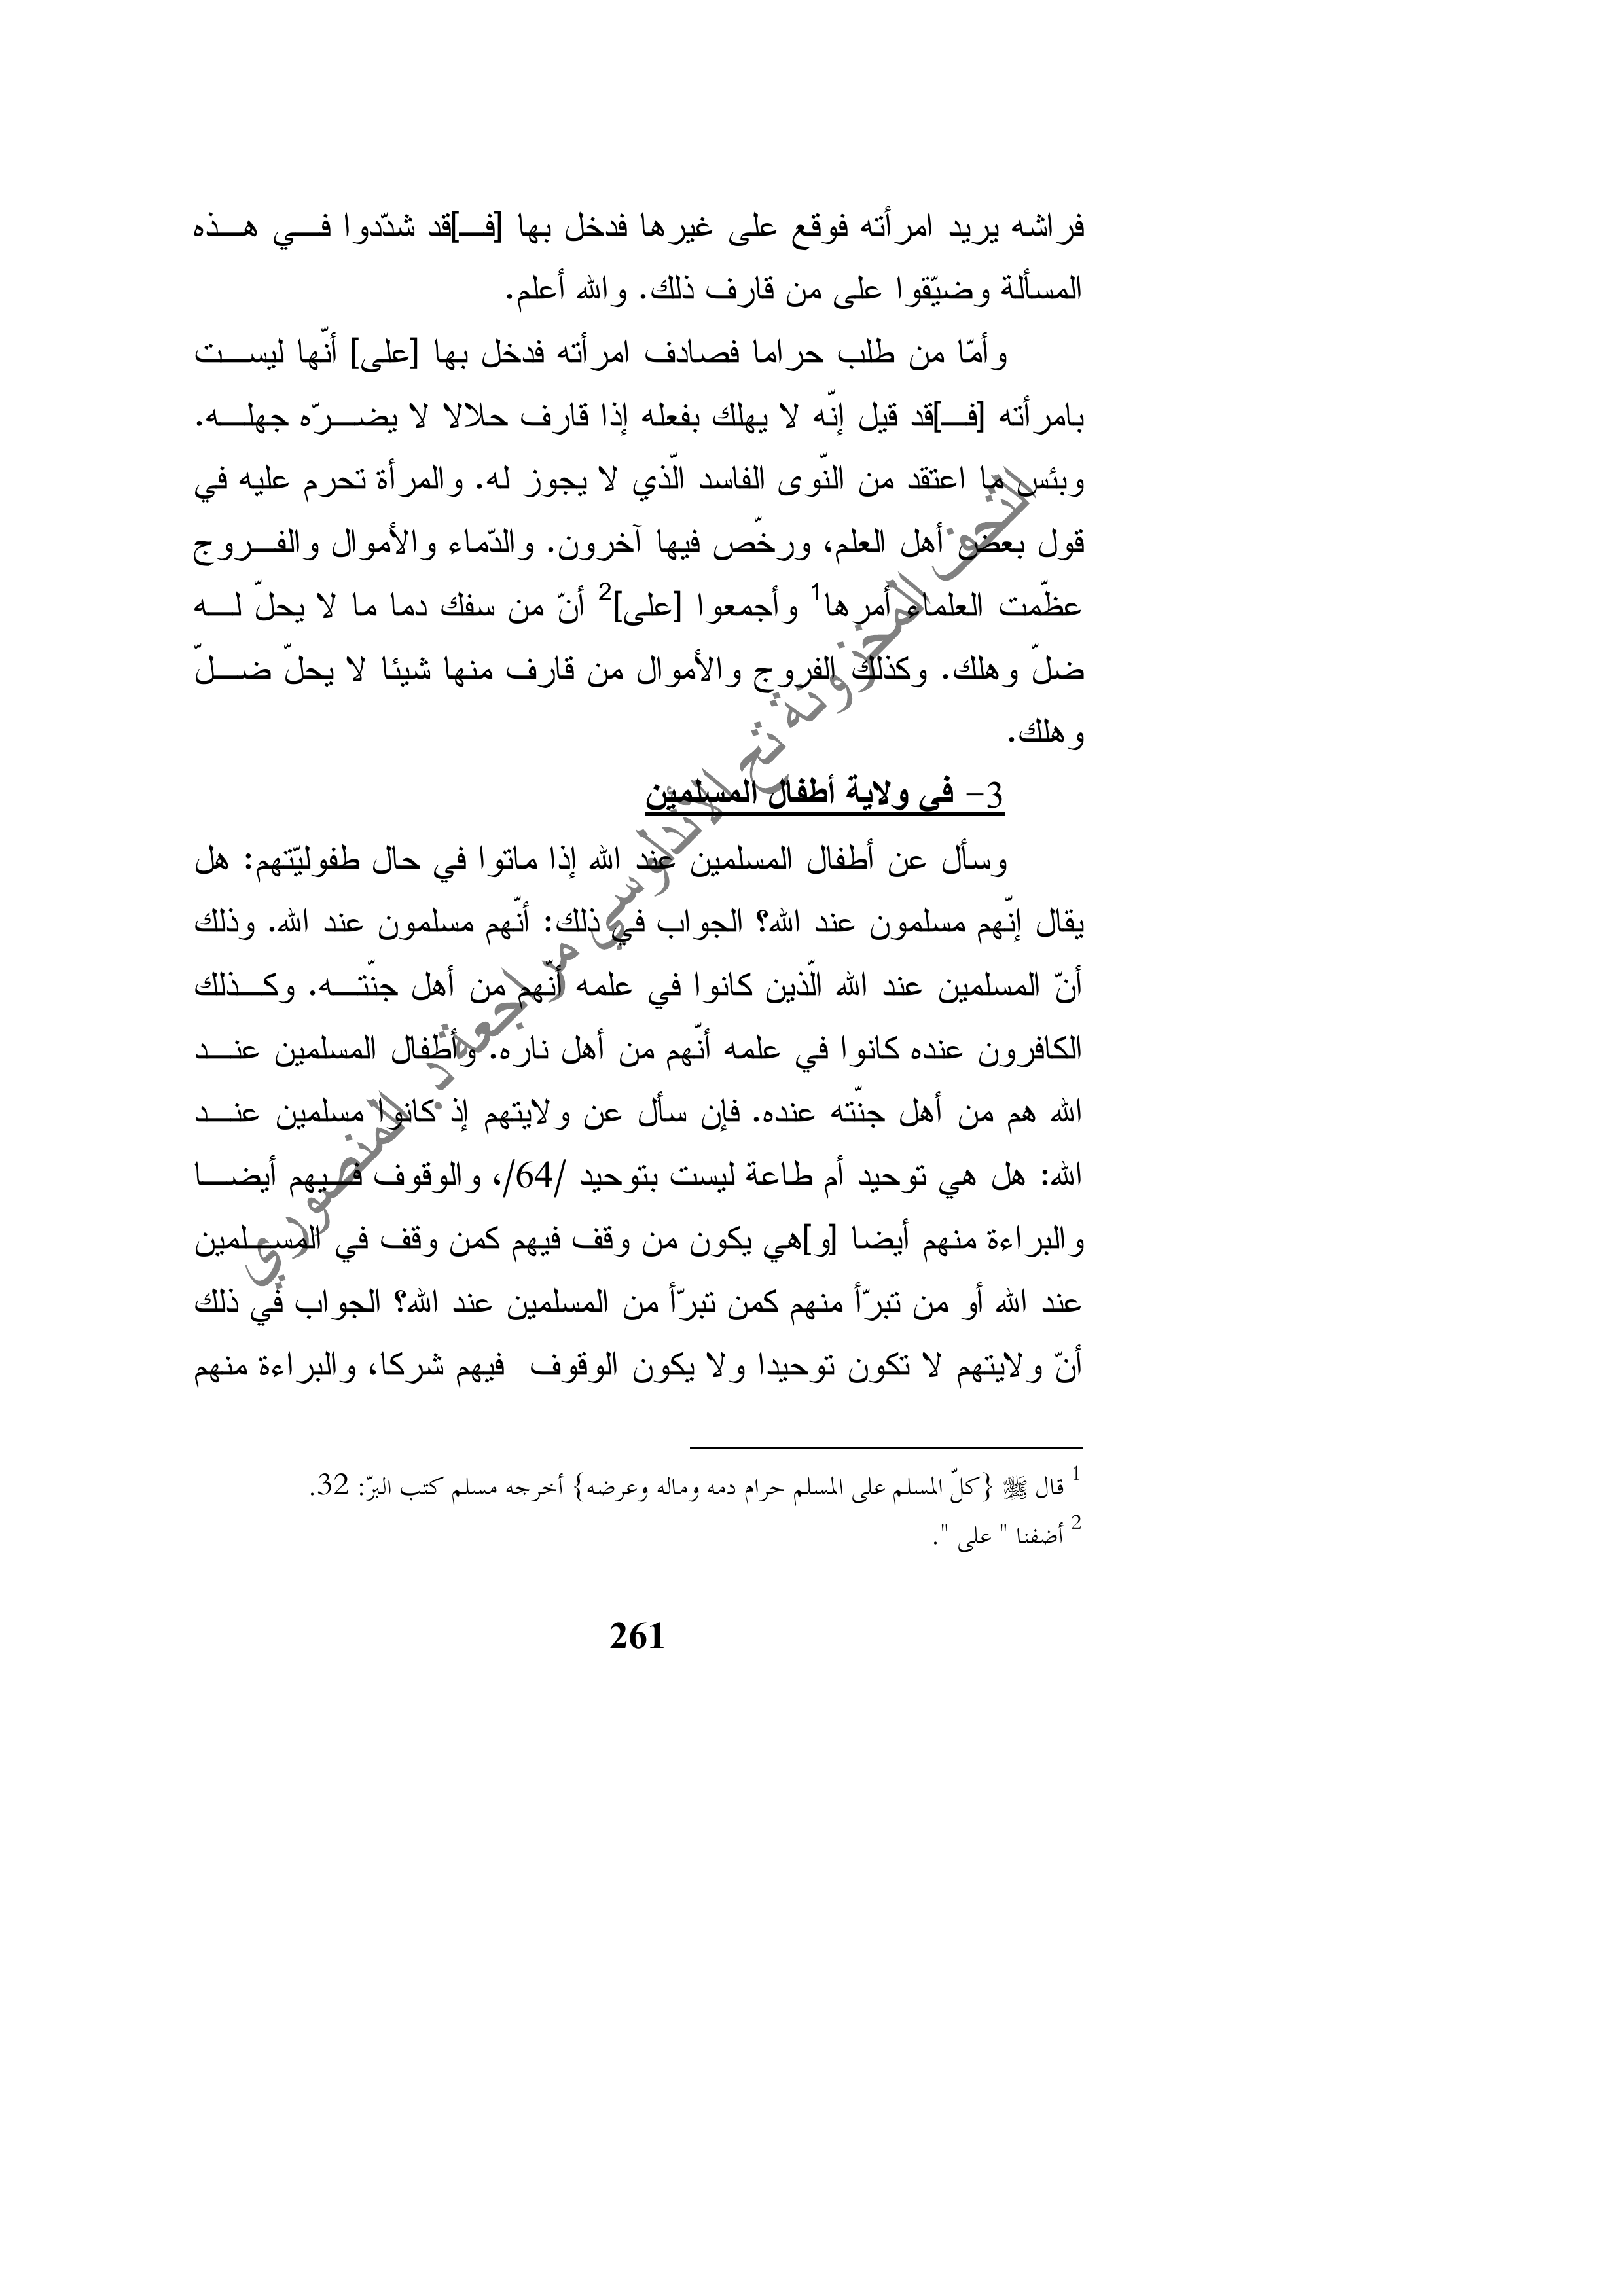 فراشه يريد امرأته فوقع على غيرها فدخل بها [فـ]قد شدّدوا في هذه
المسألة وضيّقوا على من قارف ذلك. والله أعلم.
وأمّا من طلب حراما فصادف امرأته فدخل بها [على] أنّها ليست
بامرأته [فـ]قد قيل إنّه لا يهلك بفعله إذا قارف حلالا لا يضرّه جهله.
وبئس ما اعتقد من النّوى الفاسد الّذي لا يجوز له. والمرأة تحرم عليه في
قول بعض أهل العلم، ورخّص فيها آخرون. والدّماء والأموال والفروج
عظّمت العلماء أمرها1 وأجمعوا [على]2 أنّ من سفك دما ما لا يحلّ له
ضلّ وهلك. وكذلك الفروج والأموال من قارف منها شيئا لا يحلّ ضلّ
وهلك.
3- في ولاية أطفال المسلمين
وسأل عن أطفال المسلمين عند الله إذا ماتوا في حال طفوليّتهم: هل
يقال إنّهم مسلمون عند الله؟ الجواب في ذلك: أنّهم مسلمون عند الله. وذلك
أنّ المسلمين عند الله الّذين كانوا في علمه أنّهم من أهل جنّته. وكذلك
الكافرون عنده كانوا في علمه أنّهم من أهل ناره. وأطفال المسلمين عند
الله هم من أهل جنّته عنده. فإن سأل عن ولايتهم إذ كانوا مسلمين عند
الله: هل هي توحيد أم طاعة ليست بتوحيد /64/، والوقوف فيهم أيضا
والبراءة منهم أيضا [و]هي يكون من وقف فيهم كمن وقف في المسلمين
عند الله أو من تبرّأ منهم كمن تبرّأ من المسلمين عند الله؟ الجواب في ذلك
أنّ ولايتهم لا تكون توحيدا ولا يكون الوقوف فيهم شركا، والبراءة منهم
1 قال ﷺ {كلّ المسلم على المسلم حرام دمه وماله وعرضه} أخرجه مسلم كتب البرّ: 32.
2 أضفنا " على ".
261
التحف المخزونة تح الاندلوسي مراجعة د. المنصوري